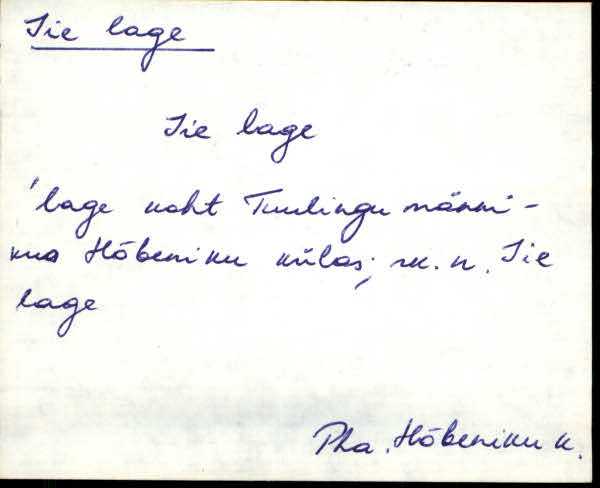 Sie lage
Sie lage
'lage koht Tuulingu männi-
kus Hõbeniku külas; rk. n. Sie
lage
Pha. Hõbeniku k.